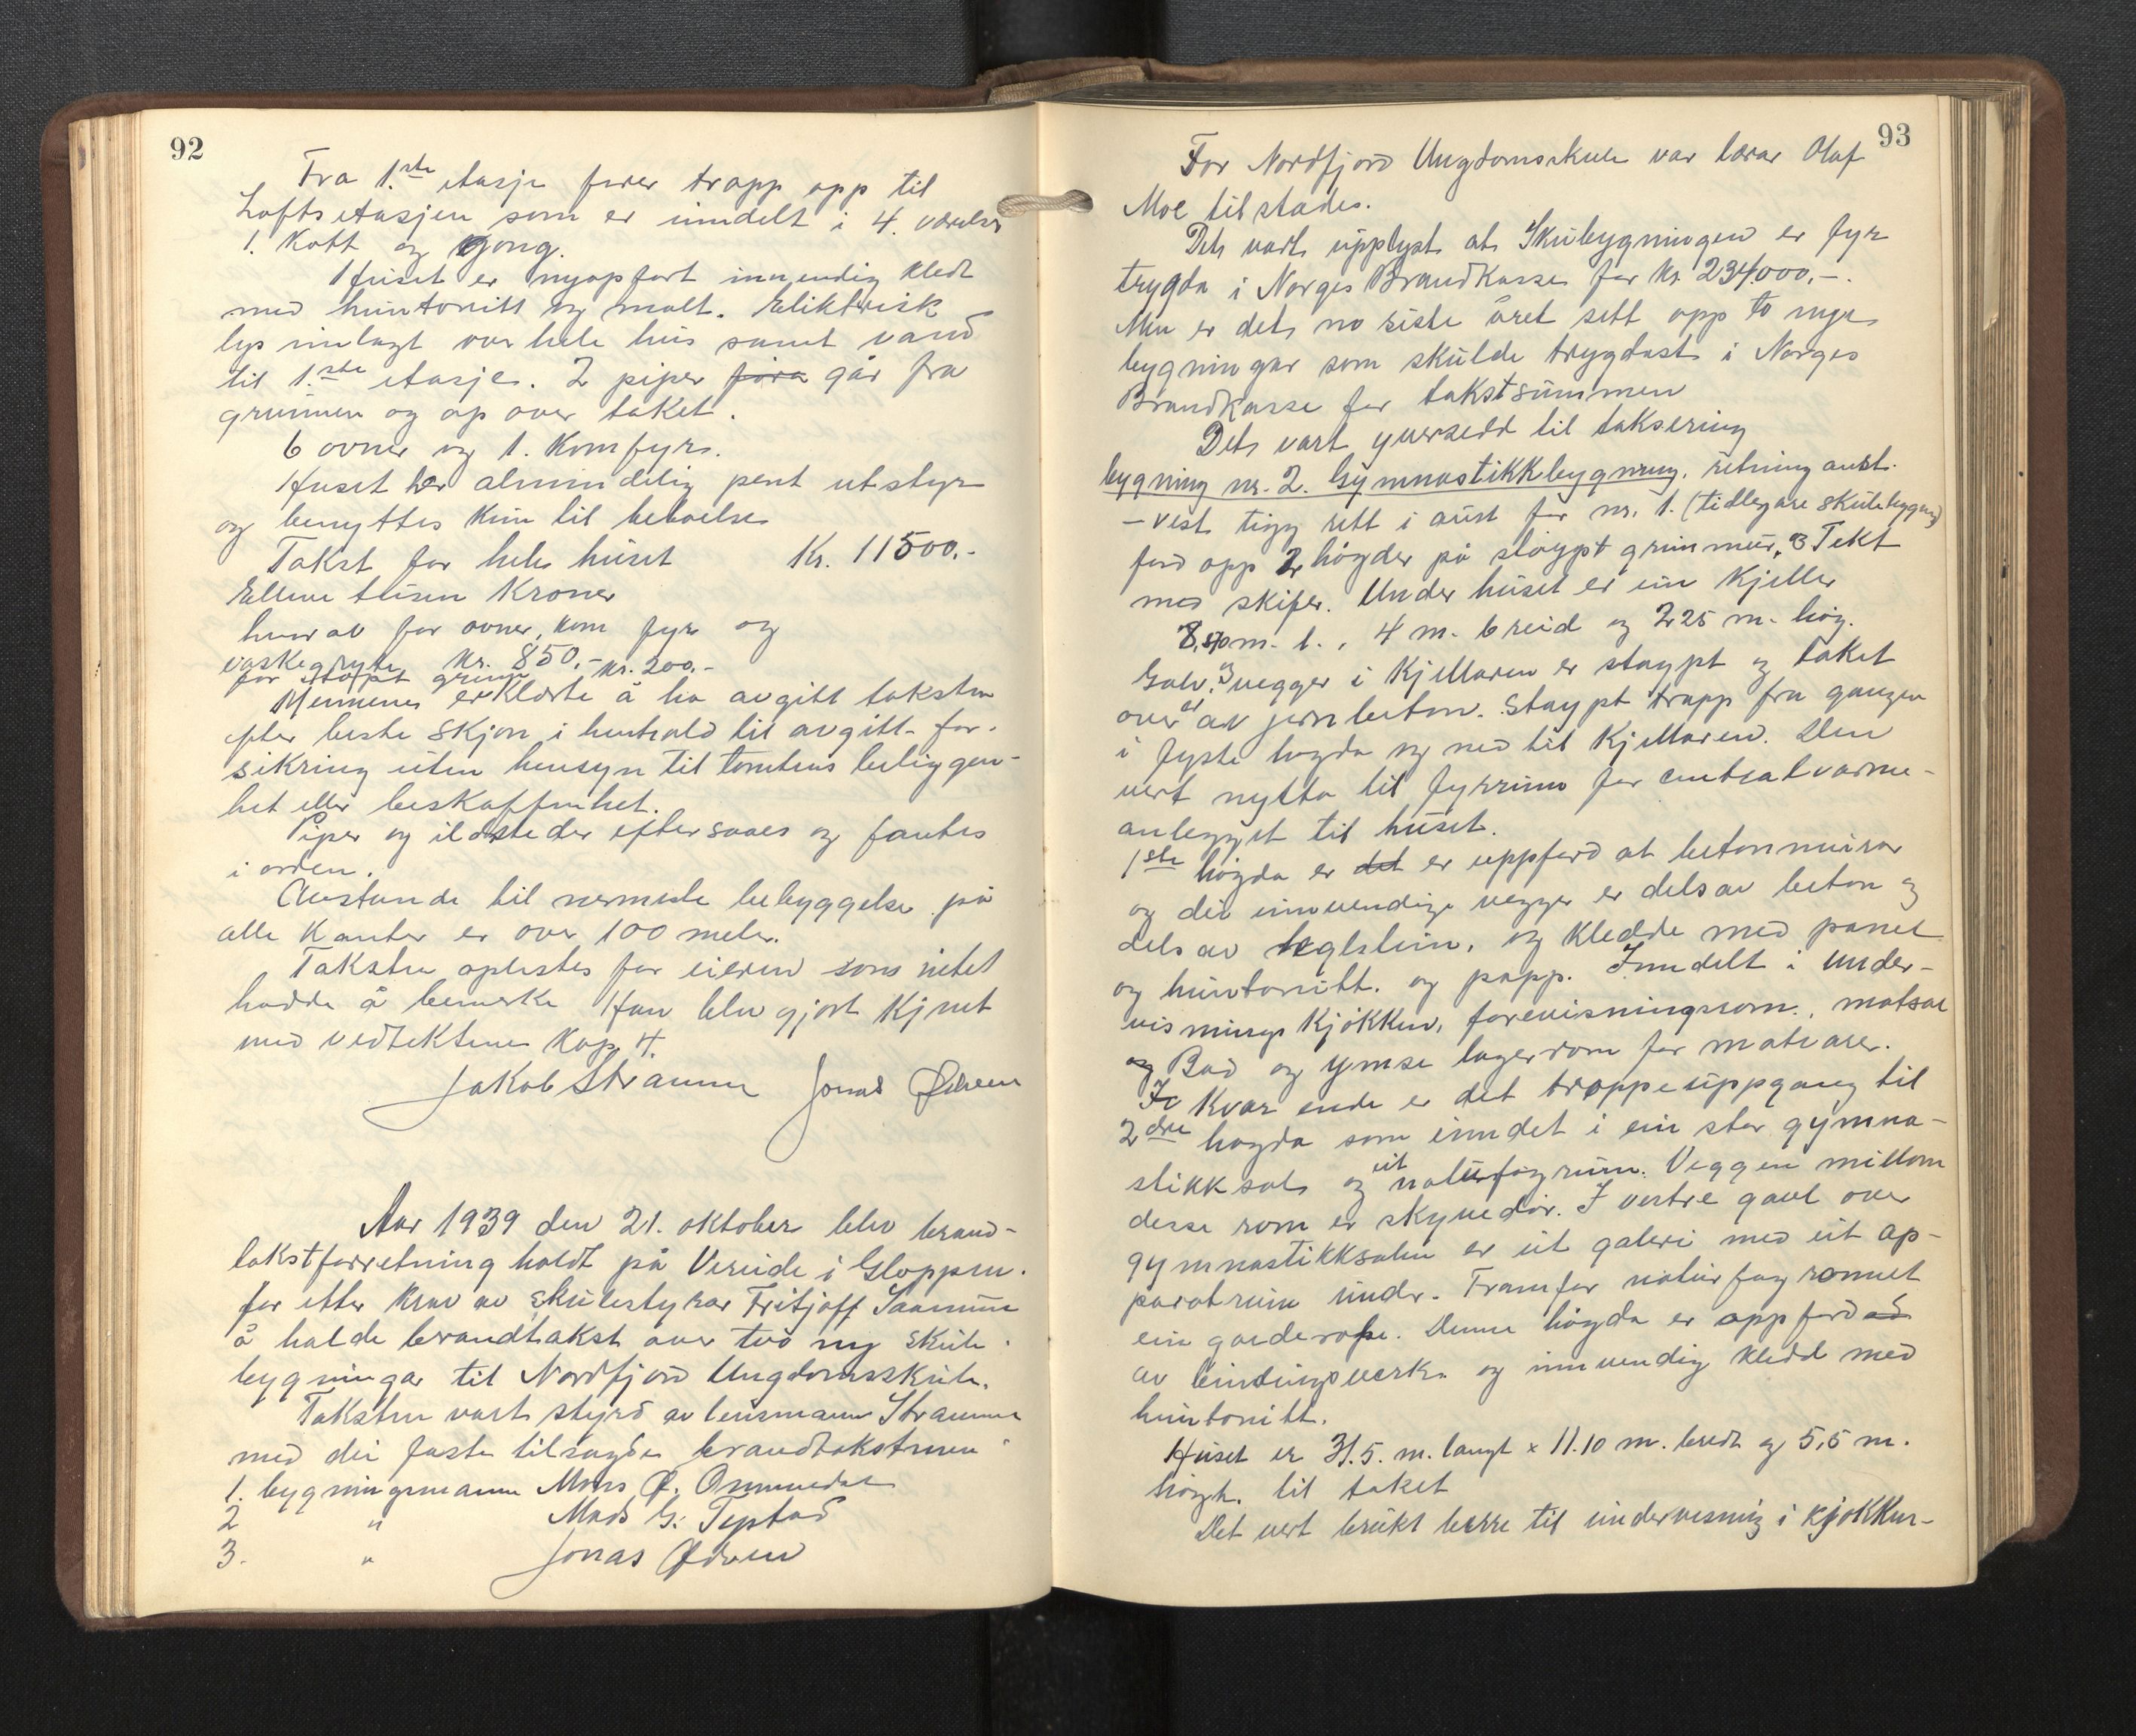 92
Fra 1.ste etasje fører trapp opp til
Loftsetasjen som er inndelt i 4. værelser
1. Kott og gong.
Huset er nyopført innvendig kledt
med huntonitt og malt. Eliktrisk
lys innlagt over hele hus samt vand
til 1.ste etasje. 2 piper går fra
grunnen og op over taket.
6 ovner og 1. Komfyr.
Huset har almindelig pent utstyr
og benyttes kun til beboelse
Takst for hele huset Kr. 11500.-
Elleve tusen Kroner
hvorav for ovner, kom fyr og
vaskegryte Kr. 850,-
for støpt grunn Kr. 200.-
Mennene erklærte å ha avgitt taksten
efter beste skjøn i henhold til avgitt for-
sikring uten hensyn til tomtens beliggen-
het eller beskaffenhet.
Piper og ildsteder eftersaaes og fantes
i orden.
Avstande til nermeste bebyggelse på
alle Kanter er over 100 meter.
Taksten oplestes for eieren som intet
hadde å bemerke Han blev gjort Kjent
med vedtektenes Kap. 4.
Jakob Straume Jonas Ødven
Aar 1939 den 21. oktober blev brand-
takstforretning holdt på Vereide i Gloppen.
for etter krav av skulestyrar Fritjoff Saamme
å halde brandtakst over två ny skule-
bygningar til Nordfjord Ungdomsskule.
Taksten vart styrd av lensmann Straume
med dei faste tilsagde brandtakstmen
1. bygningsmann Mons Ø. Ommedal
2 " Mads G. Tystad
3. " Jonas Ødven
93
For Nordfjord Ungdomsskule var lærar Olaf
Moe tilstades.
Dets vart upplyst at Skulbygningen er fyr
trygda i Norges Brandkasse for Kr. 234.000,-.
Men er dets no siste året sett opp to nye
bygningar som skulde trygdast i Norges
Brandkasse for takstsummen
Dets vart yversedd til taksering
bygning nr. 2. Gymnastikkbygning. retning aust.
- vest ligg rett i aust for nr. 1. (tidlegare skulebygning)
ford opp 2 høgder på støypt grunnmur, & Tekt
med skifer. Under huset er ein Kjeller
8,50 m. l., 4 m. breid og 2,25 m. høg.
Golv & vegger i Kjellaren er støypt og taket
over er av jernbeton. Støypt trapp fra gangen
i fyste høgda og ned til Kjellaren. Den
vert nytta til fyrrum for centralvarme-
anlegget til huset.
1ste høgda er det er uppførd at betonmurar
og dei innvendige vegger er dels av beton og
dels av teglstein, og kledde med panel
og huntonitt. og papp. Inndelt i under-
visnings Kjøkken, forevisningsrom, matsal
og Bad og ymse lagerrom for matvarer.
I Kvar ende er det trappeuppgang til
2dre høgda som inndet i ein stor gymna-
stikksal og eit naturfagrum. Veggen millom
desse rom er skyvedør. I vestre gavl over
gymnastikksalen er eit galeri med eit ap-
paratrum under. Framfor naturfagromet
ein garderobe. Denne høgda er oppførd
av bindingsverk og innvendig kledd med
huntonitt.
Huset er 31.5. m. langt x 11.10 m. bredt og 5,5 m.
høgt. til taket
Det vert brukt berre til undervisning i kjøkken-